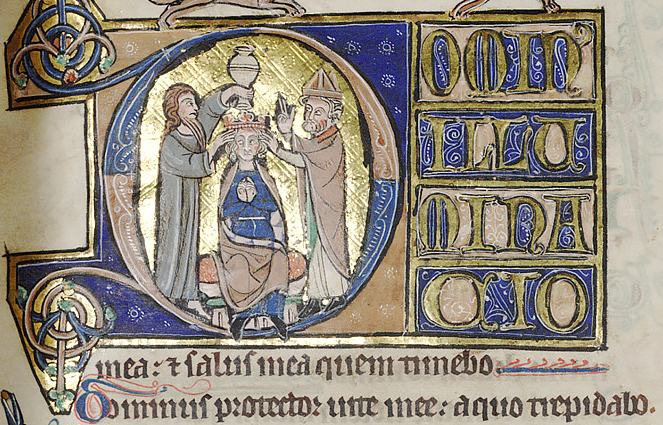 DOMIN
ILLU
MINA
CIO
mea: ⁊ salus mea quem timebo.
Dominus protector uite mee: aquo trepidabo.